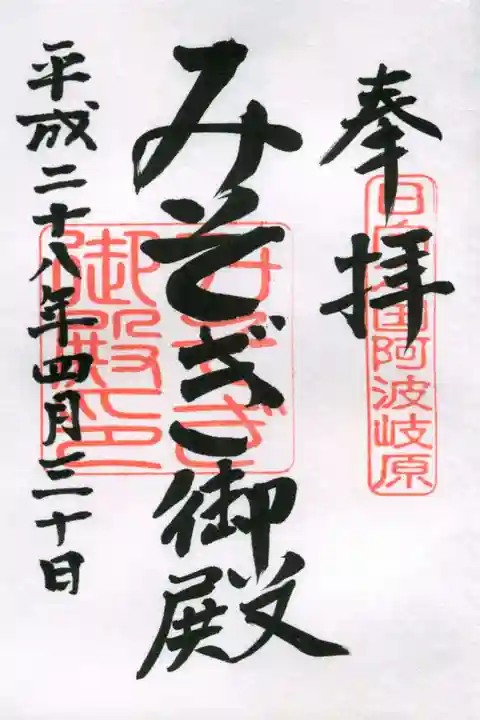 奉拝
日向国阿波岐原
みそぎ御殿
みそぎ
御殿印
平成二十八年四月三十日